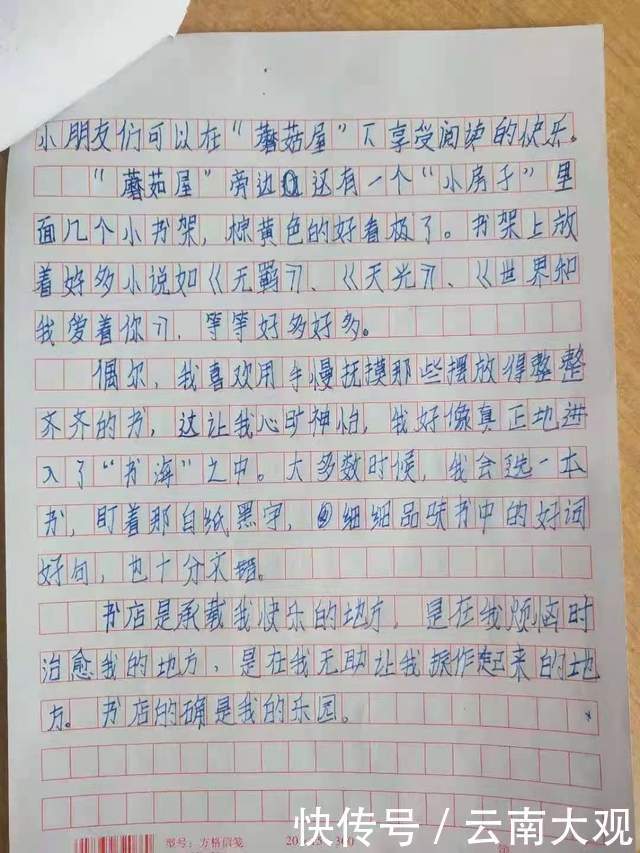 小朋友们可以在“蘑菇屋”下享受阅读的快乐。
“蘑茹屋”旁边还有一个“小房子”里
面几个小书架，棕黄色的好看极了。书架上放
着好多小说如《无羁》、《天光》、《世界和
我爱着你》，等等好多好多。
偶尔，我喜欢用手慢抚摸那些摆放得整整
齐齐的书，这让我心旷神怡，我好像真正地进
入了“书海”之中。大多数时候，我会选一本
书，盯着那白纸黑字，细细品味书中的好词
好句，也十分不错。
书店是承载我快乐的地方，是在我烦恼时
治愈我的地方，是在我无助让我振作起来的地
方。书店的确是我的乐园。
型号：方格信笺
快传号／云南大观